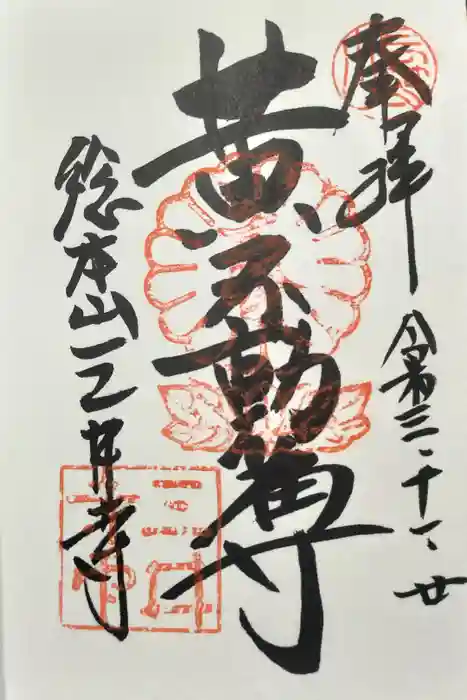 奉拝
令和三、十一、廿
黄不動尊
総本山三井寺